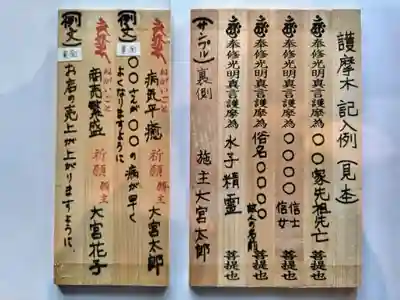 護摩木 記入例(見本)
奉修光明真言護摩為 〇〇家先祖亡 菩提也
奉修光明真言護摩為 〇〇〇〇 信士 信女 菩提也
奉修光明真言護摩為 俗名〇〇〇〇 故人の名前 菩提也
奉修光明真言護摩為 水子精霊 菩提也
(サンプル) 裏側 施主 大宮太郎
(例文)
裏側
ねがいごと
病気平癒 祈願 願主 大宮太郎
〇〇さんが〇〇の病が早く
よくなりますように
(例文)
裏側
ねがいごと
商売繁盛 祈願 願主 大宮花子
お店の売上が上がりますように、